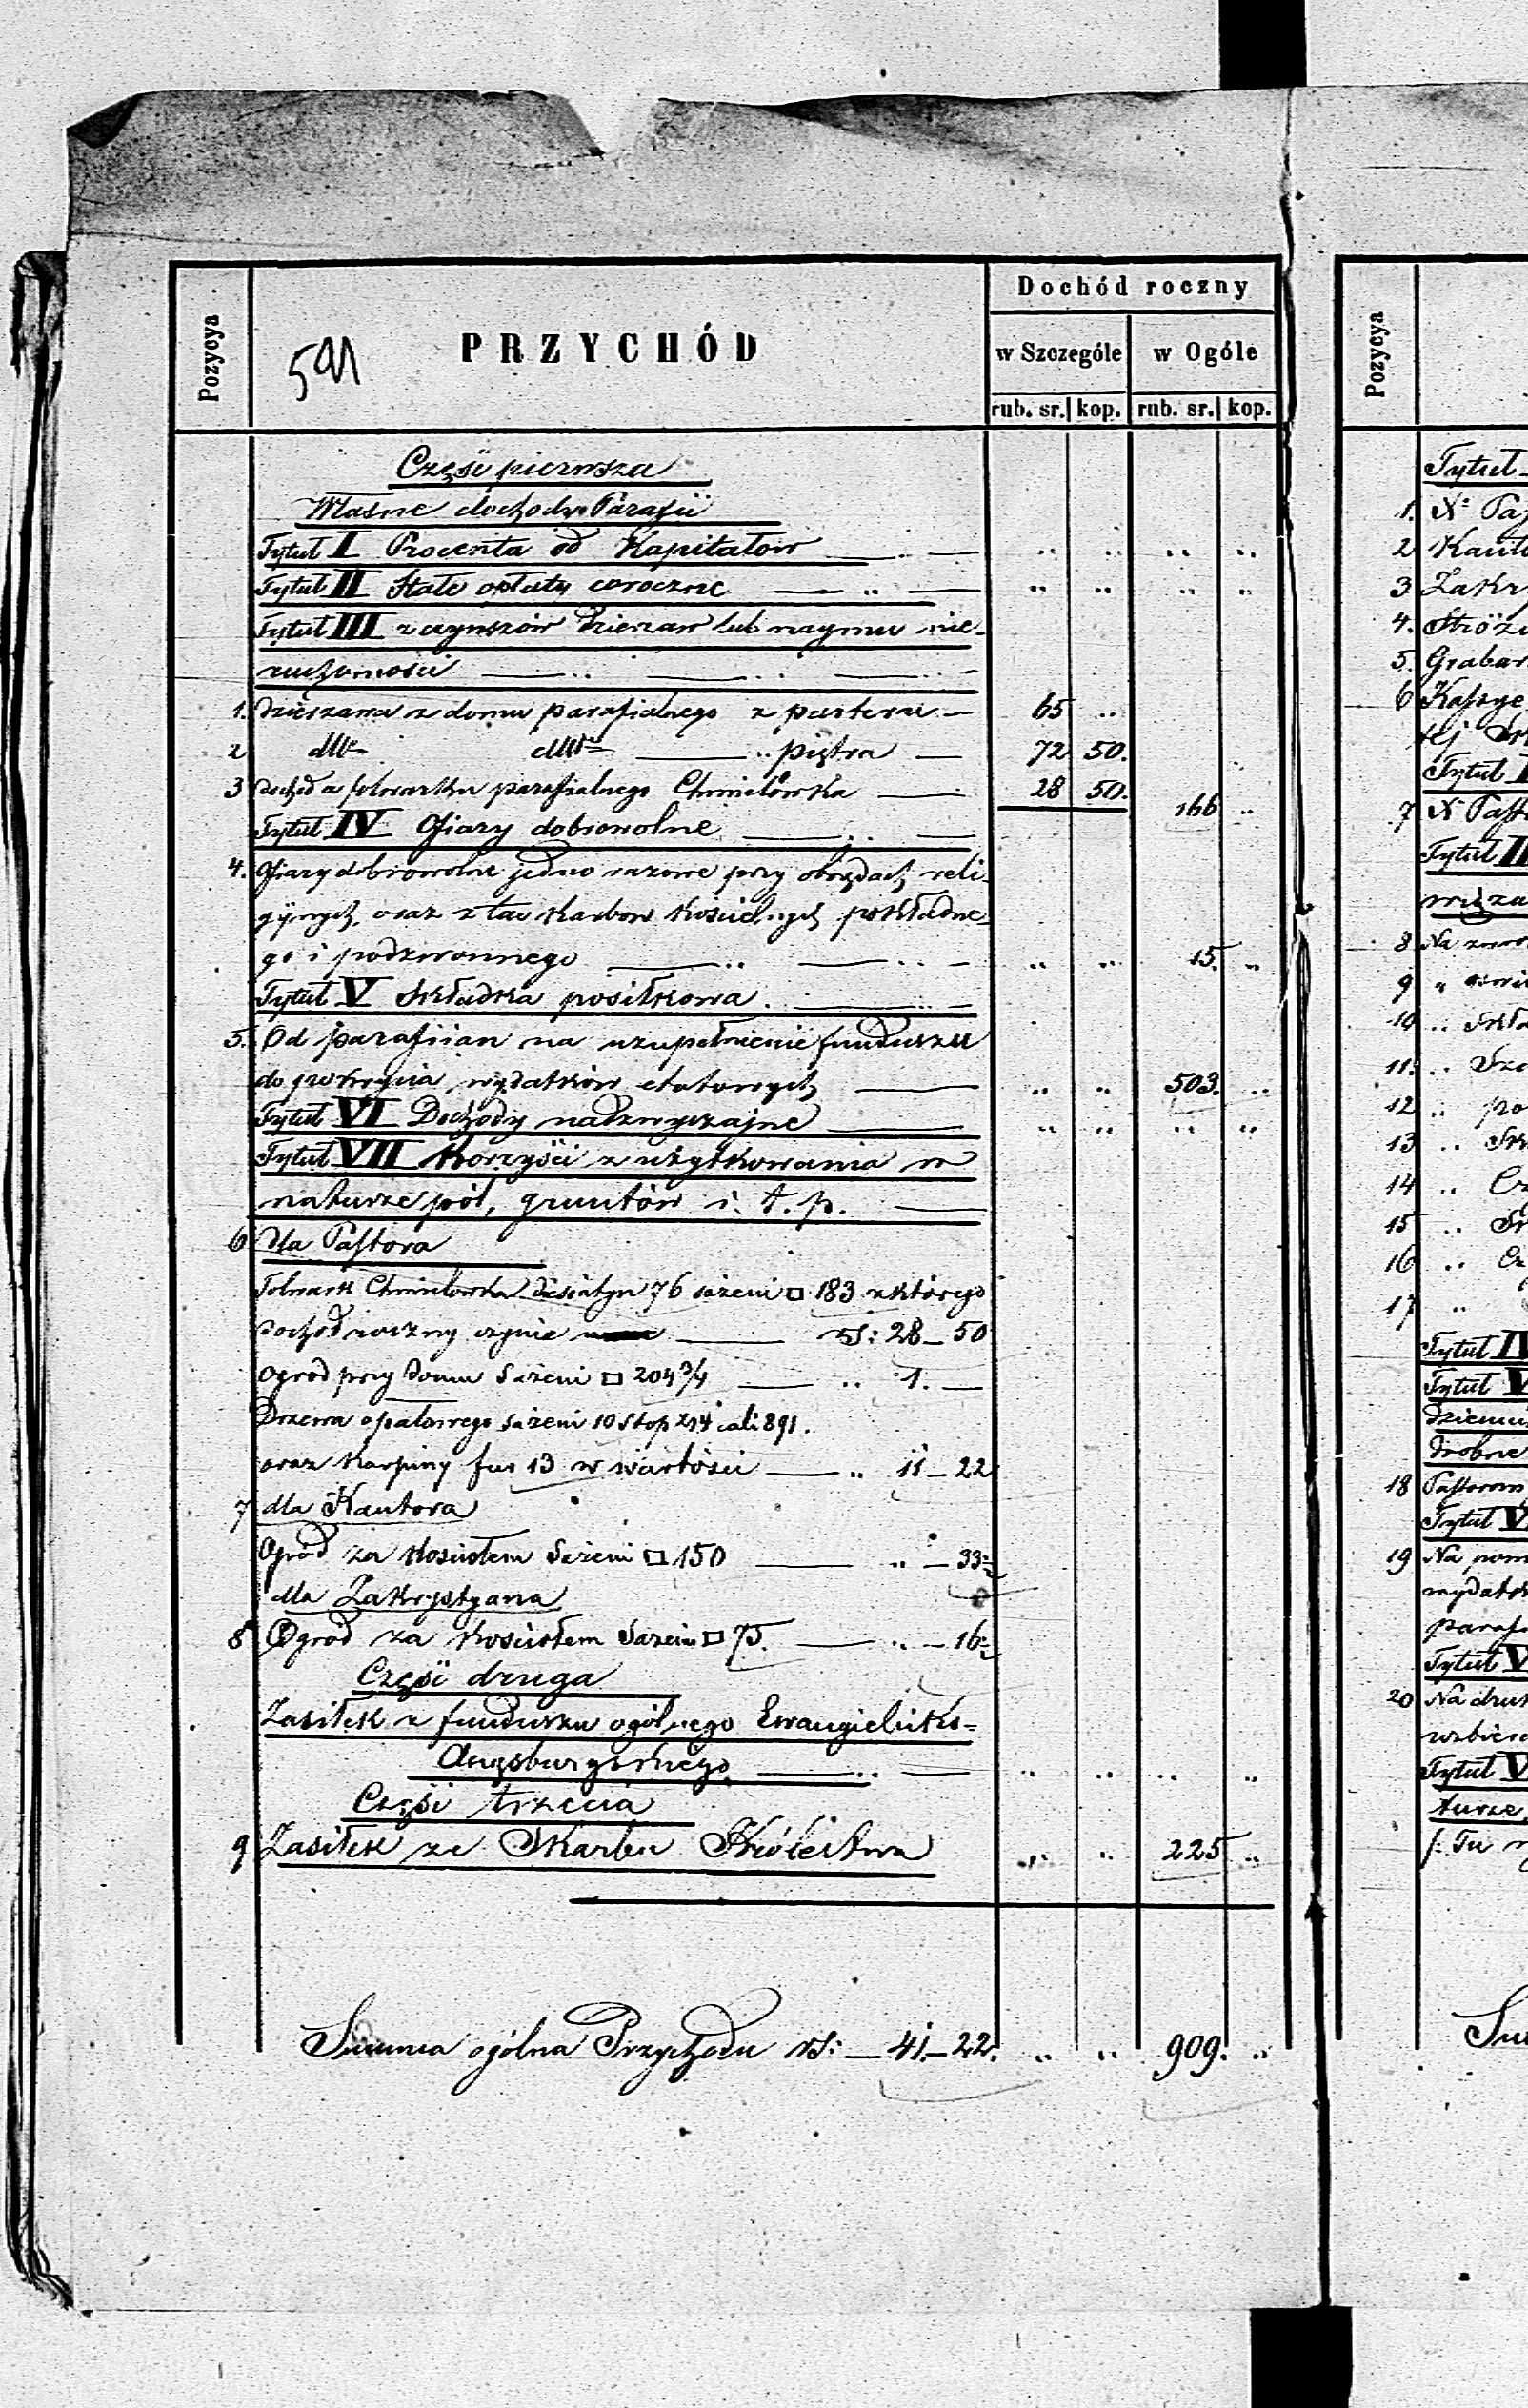 Pozycya
591
PRZYCHÓD
Dochód roczny
w Szczególe
w Ogóle
rub. sr. kop. rub. sr. kop.
Część pierwsza
Własne dochody Parafii
Tytuł I Procenta od Kapitałów
Tytuł II Stałe opłaty coroczne
Tytuł III z czynszów dzierzaw lub naymu nie-
ruchomości
1. Dzierzawa z domu parafialnego z parteru 65 ..
2 dtto dtto .. piętra 72 50.
3 dochód z folwarku parafialnego Chmielówka 28 50. 166 ..
Tytuł IV Ofiary dobrowolne
4. Ofiary dobrowolne jedno razowe przy obrzędach reli-
gijnych, oraz z tac karbon kościelnych pokładne-
go i podzwonnego .. .. 15. ..
Tytuł V Składka posiłkowa
5. Od parafiian na uzupełnienie funduszu
do pokrycia wydatków etatowych .. .. 503. ..
Tytuł VI Dochody nadzwyczajne .. .. .. ..
Tytuł VII Korzyści z użytkowania w
naturze pól, gruntów i. t. p.
6 dla Pastora
Folwark Chmielowka diesiatyn 76 sążeni □ 183 z którego
dochód roczny czynie rs: 28 – 50
Ogród przy domu Sążeni □ 204 3/4 .. 1. —
Drzewa opałowego sążeni 10 stop 214 cali 891.
oraz Karpiny fur 13 w wartości .. 11 – 22
7 dla Kantora
Ogród za Kościołem Sążeni □ 150 .. – 33
dla Zakrystyana
8 Ogród za Kościołem Sążeni □ 75. .. – 16
Część druga
Zasiłek z funduszu ogólnego Ewangielicko=
Augsburgskiego .. .. .. ..
Część trzecia
9 Zasiłek ze Skarbu Królestwa .. .. 225 ..
Summa ogólna Przychodu rs: – 41. – 22. .. .. 909. ..
Pozycya
Tytuł
1. X.
2 Kant
3 Zakr
4. Stróż
5. Grabar
6
Tytuł
7 X Past
Tytuł II
8 Na
9 "
10 ..
11. ..
12 .. po
13 ..
14 ..
15 ..
16 ..
17 ..
Tytuł IV
Tytuł V
drobne
18 Pastorow
Tytuł V
19 Na pom
wydatk
paraf
Tytuł V
20 Na druk
Tytuł V
turze